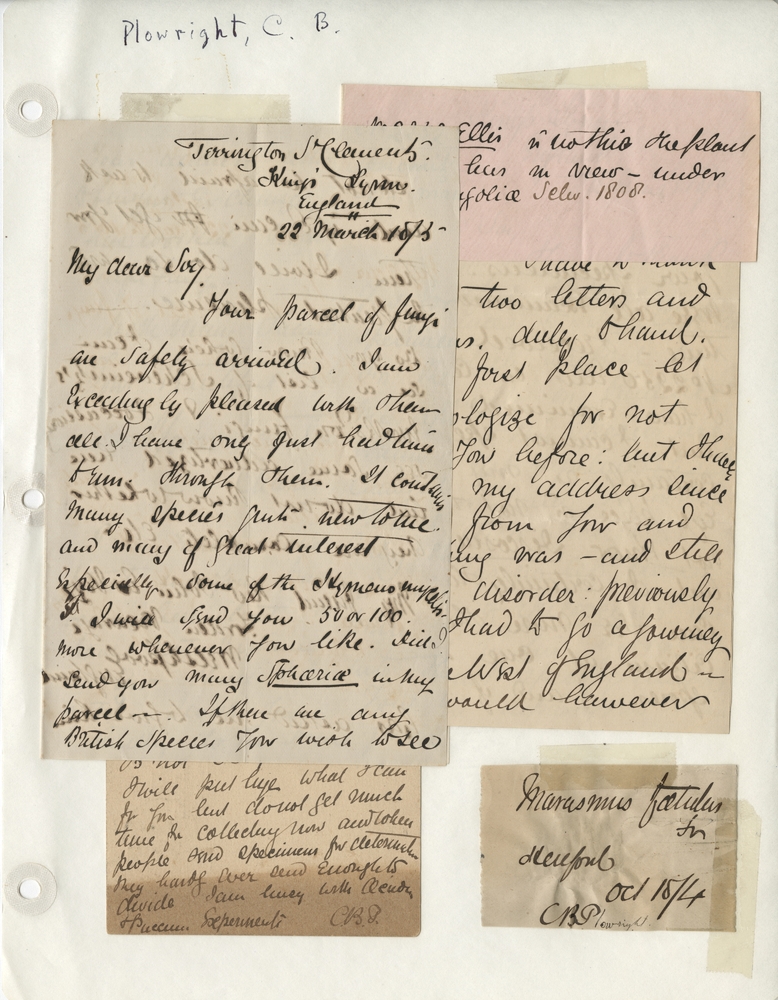 Plowright, C. B.
Ellis is not this the plant
has in view – under
Selw. 1808.
Terrington St Clements.
King's Lynn.
England
22 March 1875
My dear Sir,
Your parcel of fungi
are safely arrived. I am
exceedingly pleased with them
all. I have only just had time
to run through them. It contains
many species quite new to me.
and many of great interest
Especially some of the
I will send you 50 or 100.
more whenever you like. Did I
send you many Sphæriæ in my
parcel —. If there are any
British Species you wish to see
I have to thank
two letters and
duly to hand.
first place let
ologize for not
you before: but I have
my address since
from you and
ing was – and still
disorder: previously
I had to go a journey
West of England –
would however
I will put bye what I can
for you but do not get much
time for collecting now and when
people send specimens for
they hardly ever send enough to
divide I am busy with
Experiments C.B.P.
Marasmius fœtidus
Sow
Hereford
Oct 1874
C B Plowright.